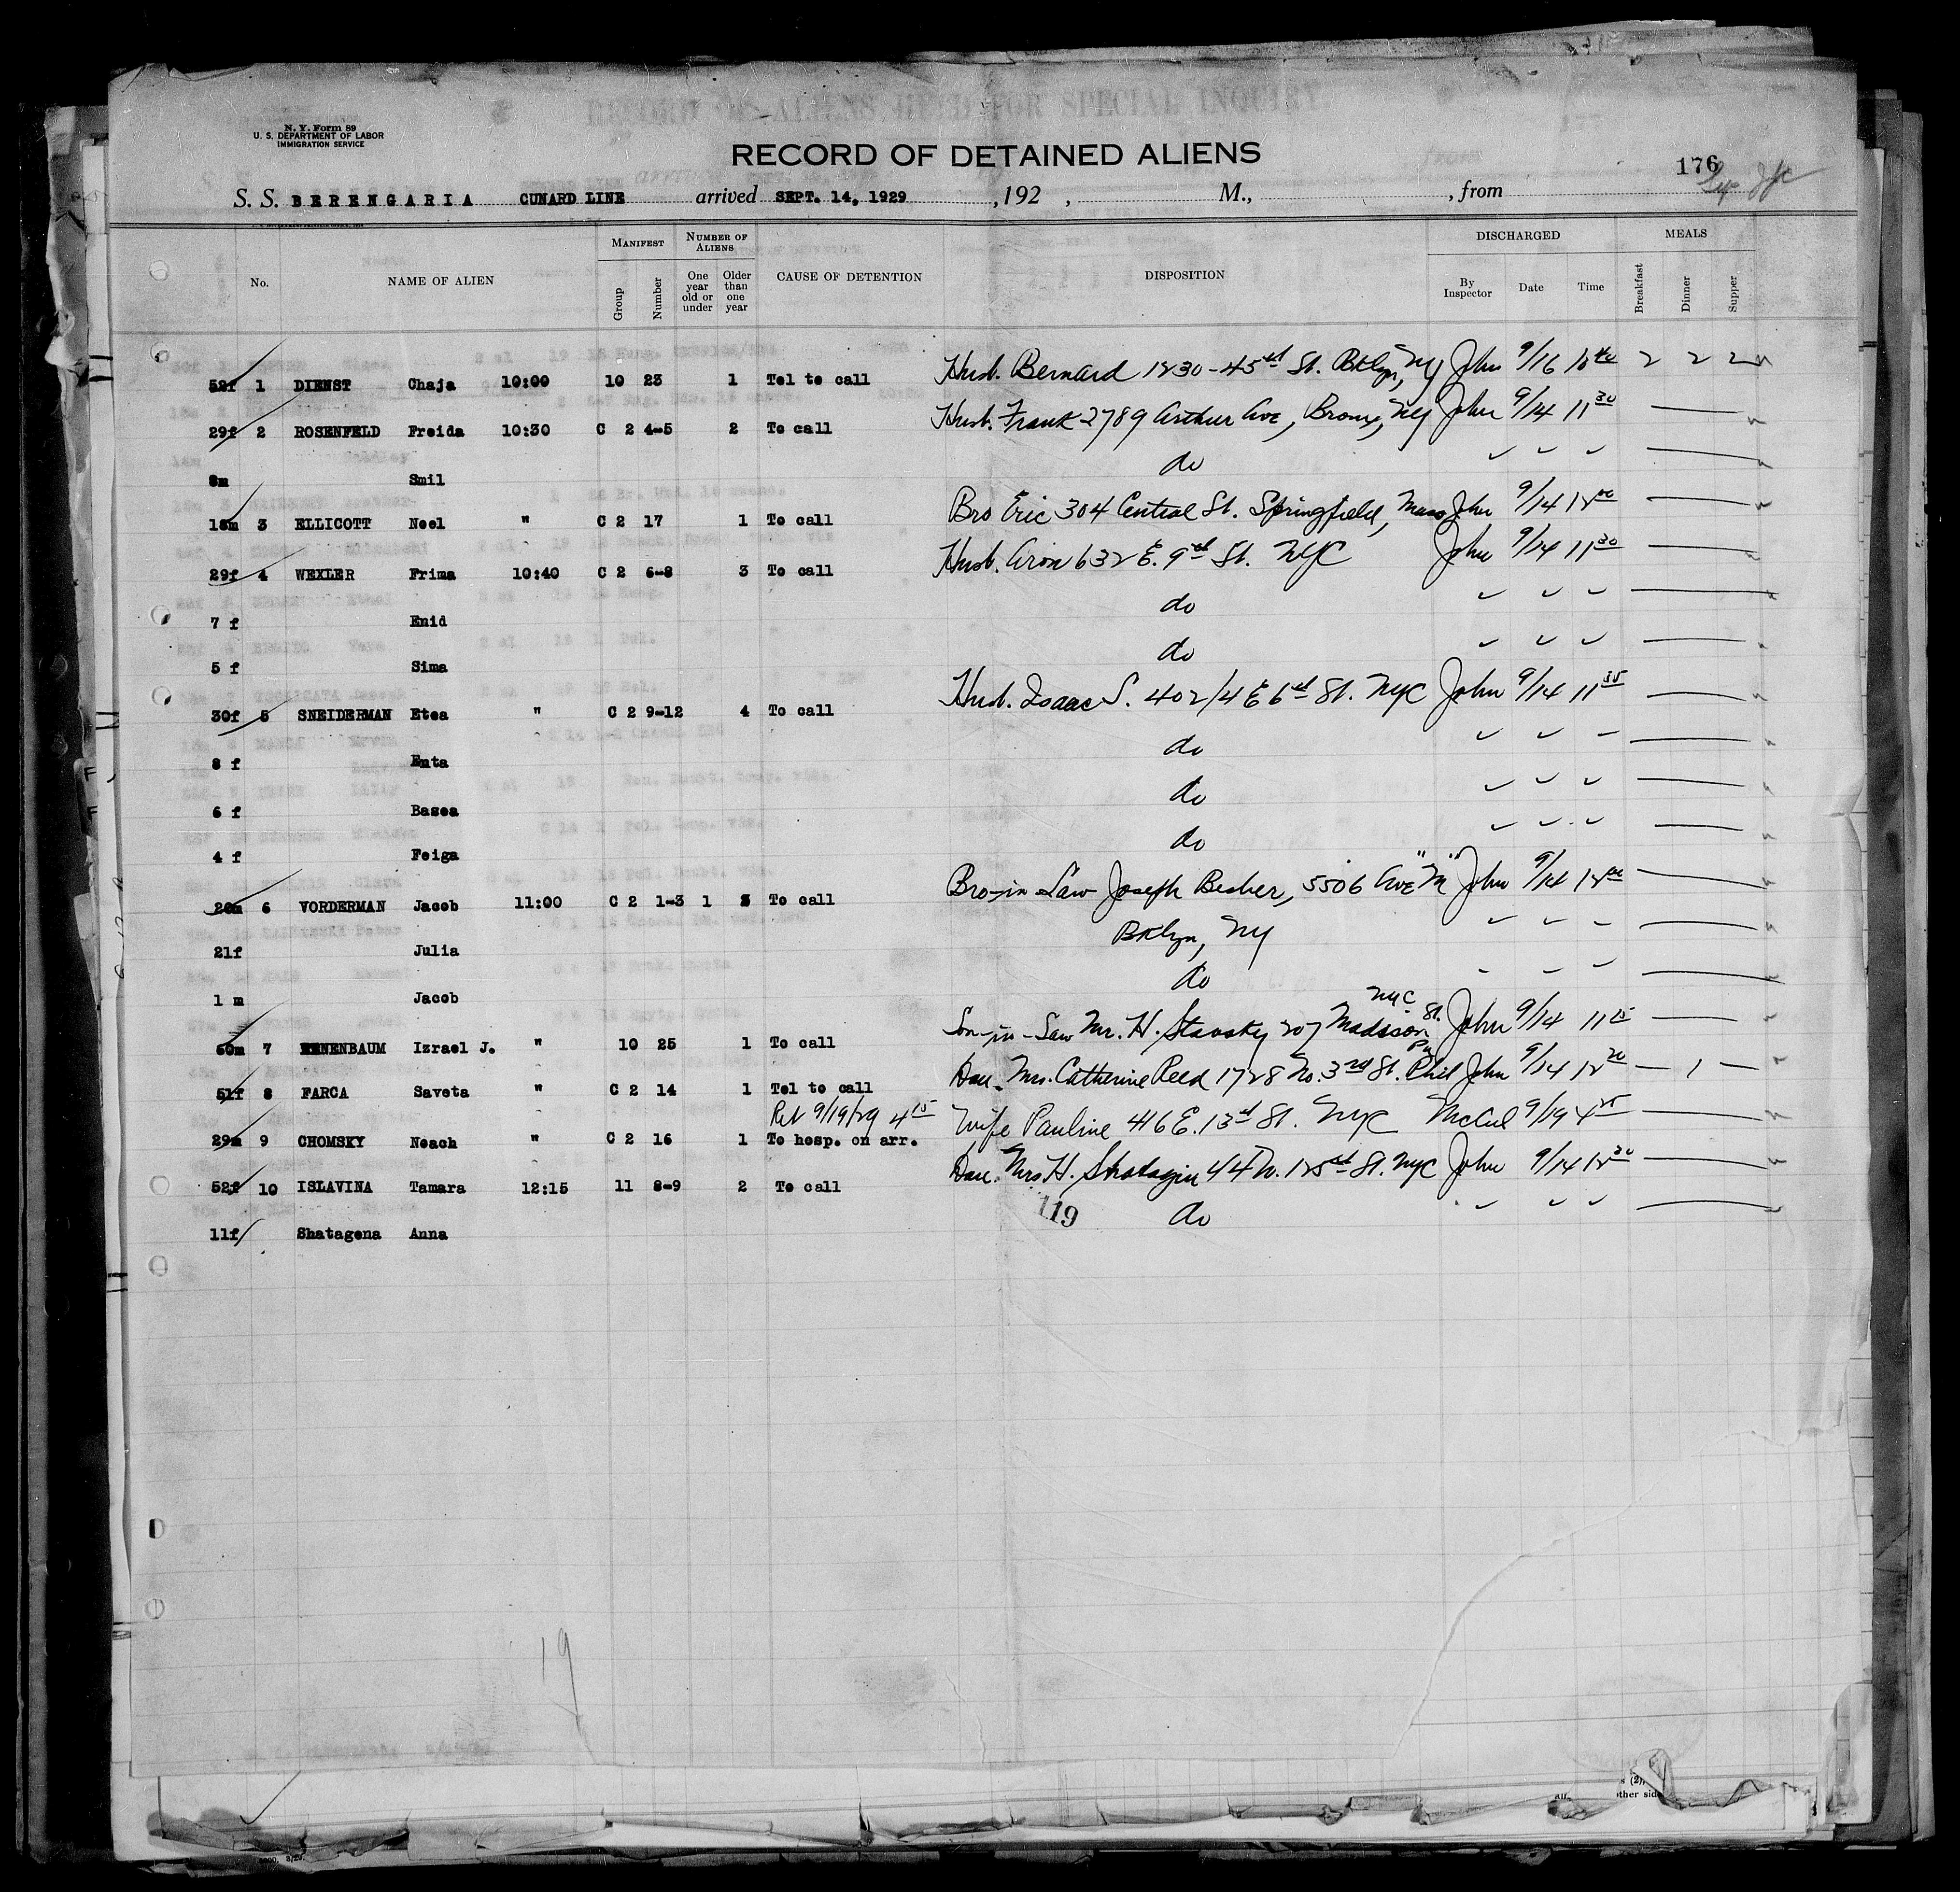 N. Y. Form 89
U. S. DEPARTMENT OF LABOR
IMMIGRATION SERVICE
RECORD OF ALIENS HELD FOR SPECIAL INQUIRY
RECORD OF DETAINED ALIENS
176
S. S. BERENGARIA CUNARD LINE arrived SEPT. 14, 1929 , 192 , M., , from
No. NAME OF ALIEN MANIFEST Group Number NUMBER OF ALIENS One year old or under Older than one year CAUSE OF DETENTION DISPOSITION DISCHARGED By Inspector Date Time MEALS Breakfast Dinner Supper
52f 1 DIENST Chaja 10:00 10 23 1 Tel to call Husb. Bernard 1230-45st St. Bklyn, NY John 9/16 10 40 2 2 2
29f 2 ROSENFELD Freida 10:30 C 2 4-5 2 To call Husb. Frank 2789 Arthur Ave, Bronx, NY John 9/14 11 30
8m Smil do
18m 3 ELLICOTT Noel " C 2 17 1 To call Bro Eric 304 Central St. Springfield, Mass John 9/14 12 00
29f 4 WEXLER Frima 10:40 C 2 6-8 3 To call Husb. Aron 632 E. 9st St. NYC John 9/14 11 30
7 f Enid do
5 f Sima do
30f 5 SNEIDERMAN Etea " C 2 9-12 4 To call Husb. Isaac S. 402/4 E 6st St. NYC John 9/14 11 35
8 f Enta do
6 f Basea do
4 f Feiga do
20m 6 VORDERMAN Jacob 11:00 C 2 1-3 1 To call Bro-in-Law Joseph Besher, 5506 Ave "M" John 9/14 12 00
21f Julia Bklyn, NY
1 m Jacob do
60m 7 TENENBAUM Izrael J. " 10 25 1 To call Son-in-Law Mr. H. Stavsky 207 Madison St. NYC John 9/14 11 15
51f 8 FARCA Saveta " C 2 14 1 Tel to call Dau. Mrs. Catherine Reed 1728 No. 3rd St. Phil Pa John 9/14 12 20 — 1 —
29m 9 CHOMSKY Noach " C 2 16 1 Ret 9/19/29 4 15 To hosp. on arr. Wife Pauline 416 E. 13st St. NYC McCul 9/19 4 25
52f 10 ISLAVINA Tamara 12:15 11 8-9 2 To call Dau. Mrs H. Shatagin 44 W. 125st St. NYC John 9/14 12 30
11f Shatagena Anna do
119
19